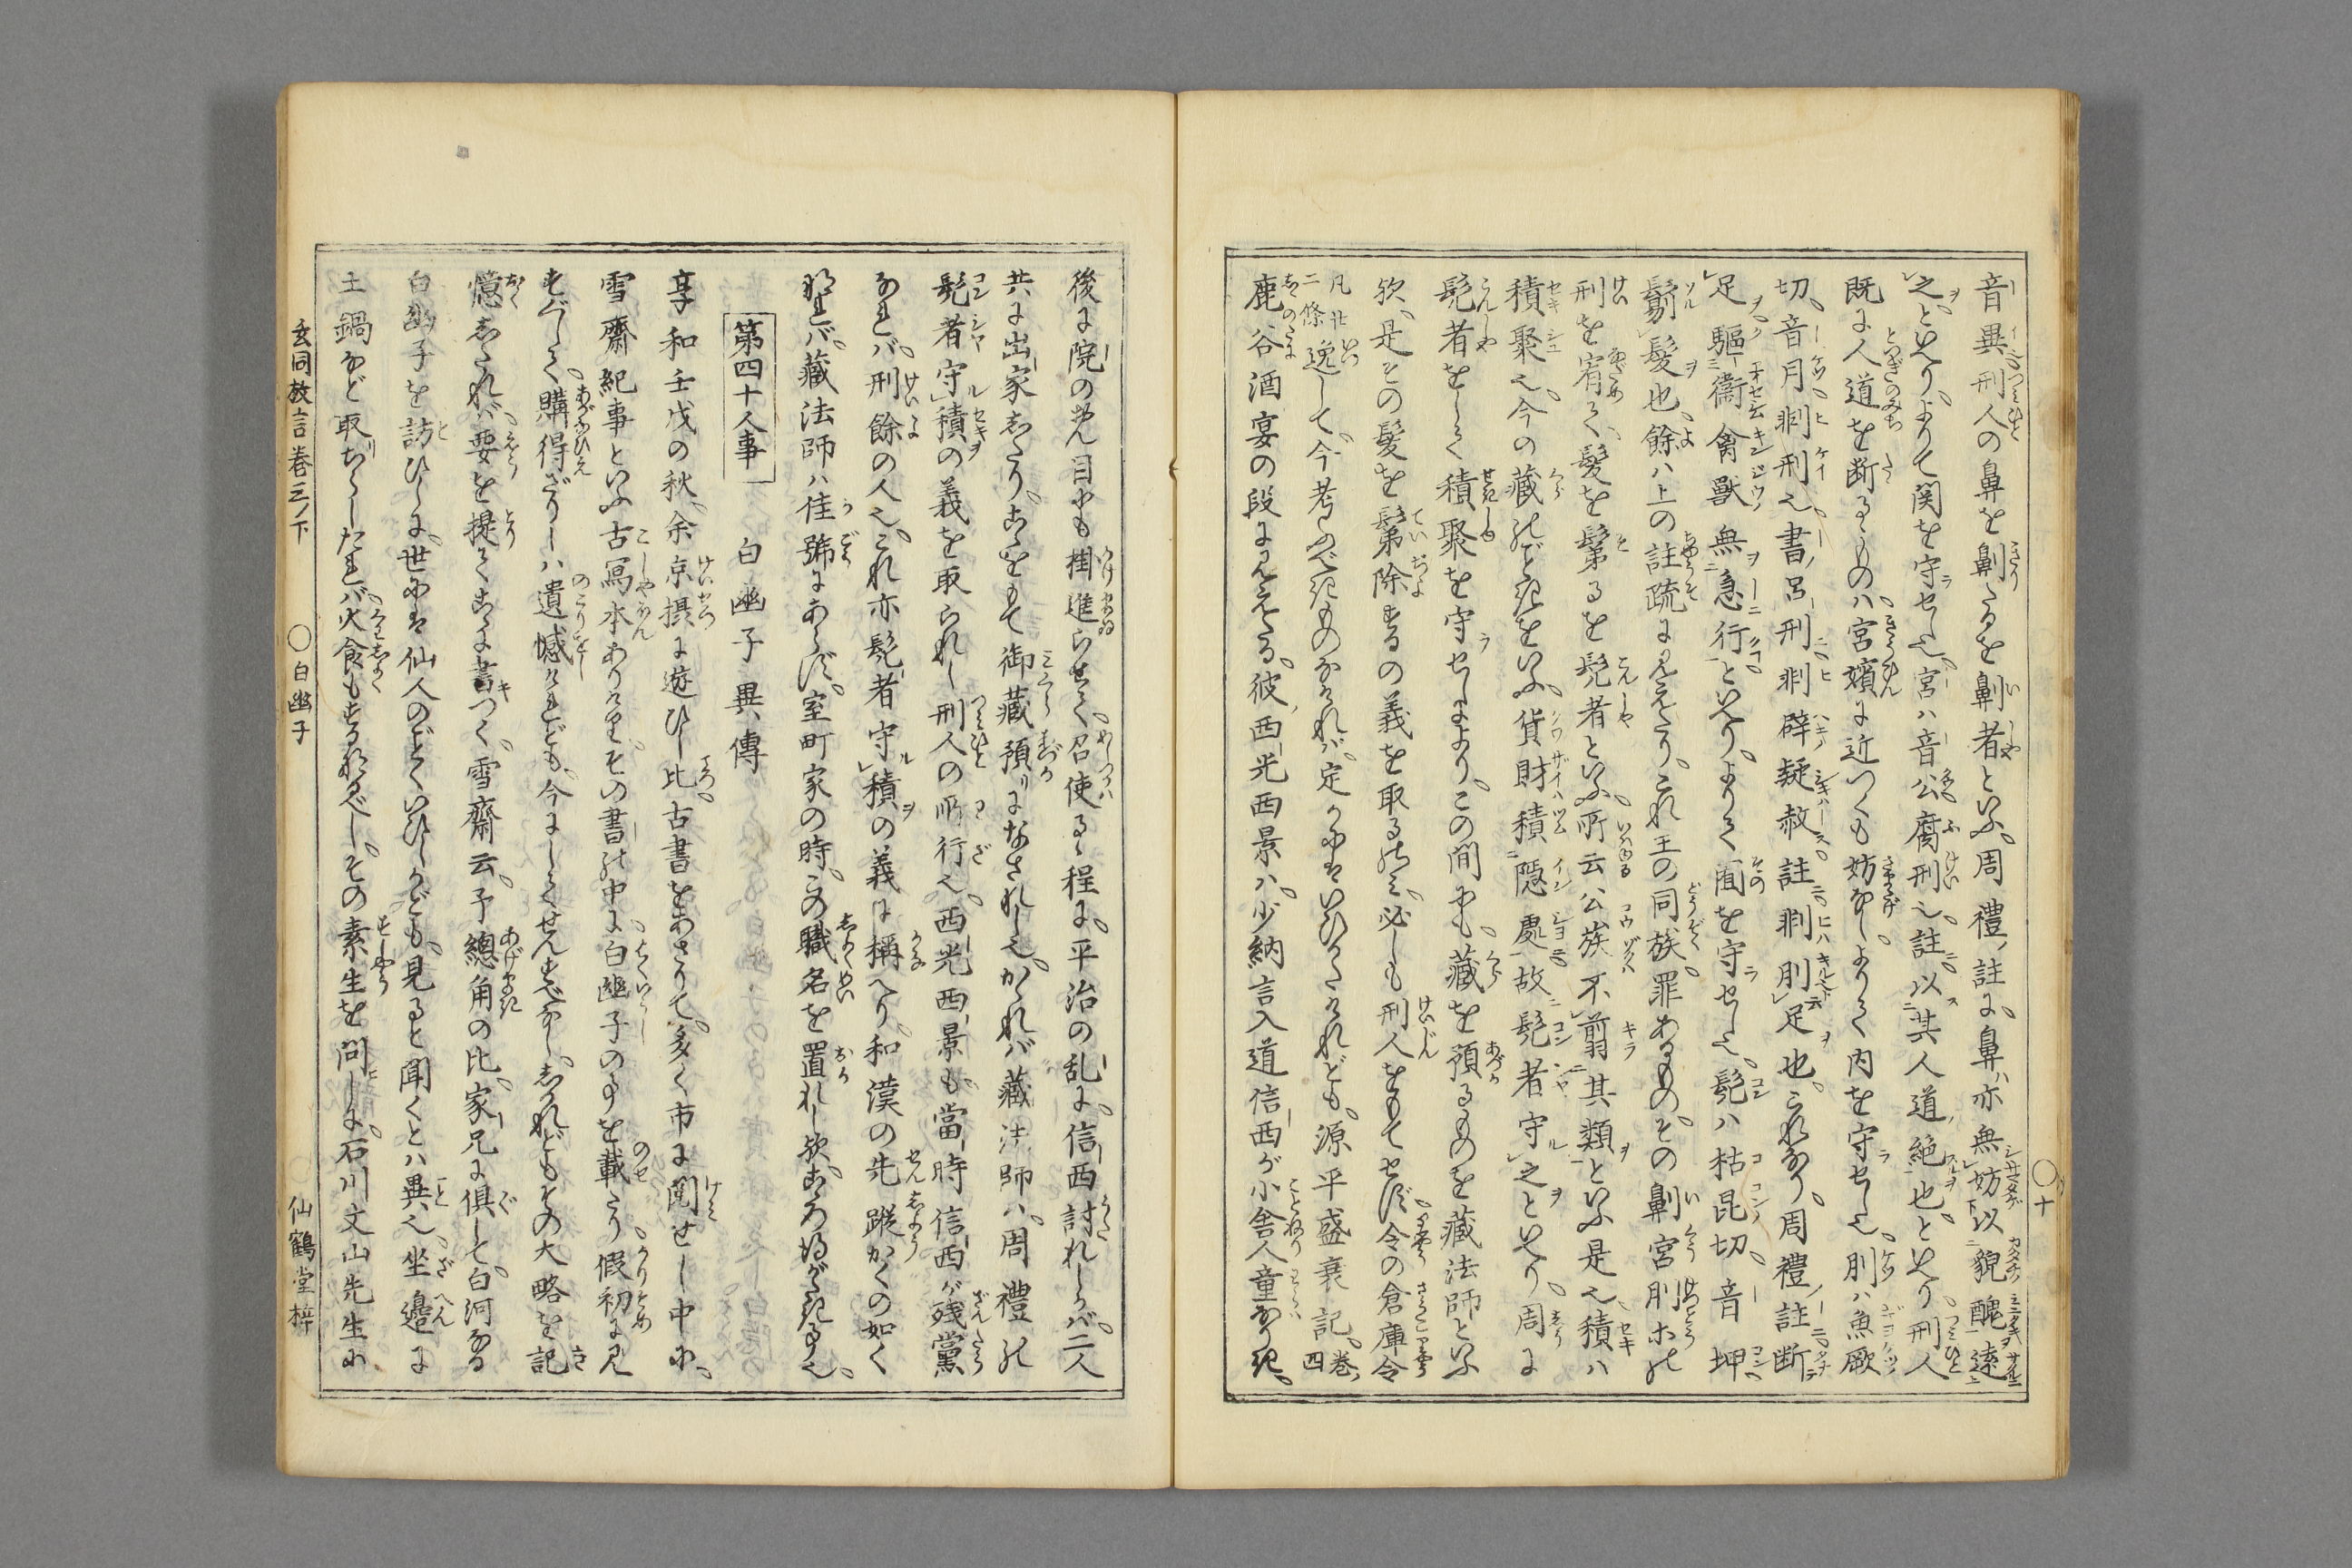 音異刑人の鼻を劓たるを劓者といふ周禮註に鼻亦無妨以貌醜遠
之といへり、よりて関を守せし也、宮ハ音公腐刑也、註以其人道絶也、といへり、刑人
既に人道を断るゝものハ、宮嬪に近つくも妨なし、よりて内を守せし也、刖ハ魚厥
切、音月剕刑也、書呂刑剕辟疑赦註剕刖足也、これなり、周禮註断
足驅衞禽獸無急行といへり、よりて囿を守せし也、髡ハ枯昆切、音坤
鬄髮也、餘ハ上の註疏に見えたり、これ王の同族罪あるもの、その劓宮刖ホの
刑を宥て、髮を髴るを髡者といふ、所云公族不翦其類といふ是也、積ハ
積聚也、今の藏のごときをいふ、貨財積隠處故髡者守之といへり、周に
髡者をして積聚を守せしにより、この間にも、藏を預るものを藏法師といふ
欤、是その髮を髴除するの義を取るのミ、必しも刑人をもてせず、令の倉庫令
凡廿二條逸して、今考ふべきものなけれバ、定かにはいひかたけれども、源平盛衰記巻四
鹿谷酒宴の段に見えたる、彼西光西景ハ、少納言入道信西が小舎人童なりき、
後に院の御目にも掛進らせて、召使るゝ程に、平治の乱に、信西討れしかバ、二人
共に出家したり、さるをもて御藏預りになされし也、かゝれバ藏法師ハ、周禮の
髡者守積の義を取られし刑人の所行也、西光西景も、當時信西が残黨
なれバ、刑餘の人也、これ亦髡者守積の義に稱へり、和漢の先蹤かくの如く
なれバ、藏法師ハ佳號にあらず、室町家の時、この職名を置れし欤、こゝろ得がたき事也、
第四十人事　白幽子異傳
享和壬戌の秋、余京摂に遊ひし比、古書をあさりて、多く市に閲せし中に、
雪齋紀事といふ古寫本ありけり、その書の中に白幽子の事を載たり、假初に見
すぐして、購得ざりしハ遺憾けれども、今にしてせんすべなし、しかれどもその大略を記
憶したれバ、要を提てこゝに書つく、雪齋云、予總角の比、家兄に倶して、白河なる
白幽子を訪ひしに、世にハ仙人のごとくいひしかども、見ると聞くとハ異也、坐邊に
土鍋など取ちらしたれバ、火食もするなるべし、その素生を問しに、石川丈山先生に
玄同放言巻三ノ下　〇白幽子　〇仙鶴堂梓
〇十